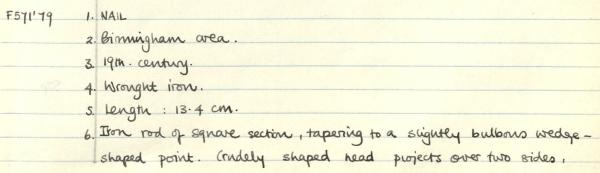 F571'79 1. NAIL
2. Birmingham area.
3. 19th. century.
4. Wrought iron.
5. Length : 13.4 cm.
6. Iron rod of square section, tapering to a slightly bulbous wedge-
shaped point. Crudely shaped head projects over two sides,